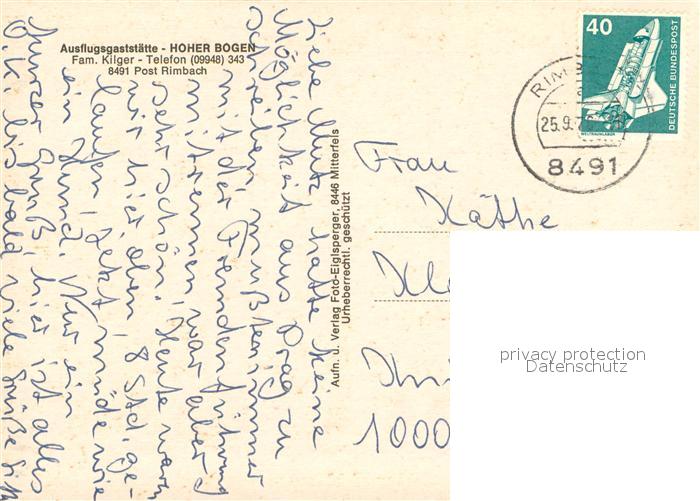 Ausflugsgaststätte - HOHER BOGEN
Fam. Kilger - Telefon (09948) 343
8491 Post Rimbach
Liebe Mutz hatte keine
Möglichkeit aus Prag zu
schreiben, mußten immer
mit der Fremdenführung
mitrennen, war aber
sehr schön. Heute waren
wir hier oben 8 Std. ge-
laufen, jetzt müde wie
ein Hund. Nur ein
kurzer Gruß, hier ist alles
O.K. bis bald viele Grüße
Aufn. u. Verlag Foto-Eiglsperger, 8446 Mitterfels
Urheberrechtl. geschützt
40
DEUTSCHE BUNDESPOST
WELTRAUMLABOR
RIMB
a
25.9.
8491
Frau
Käthe
1000
privacy protection
Datenschutz